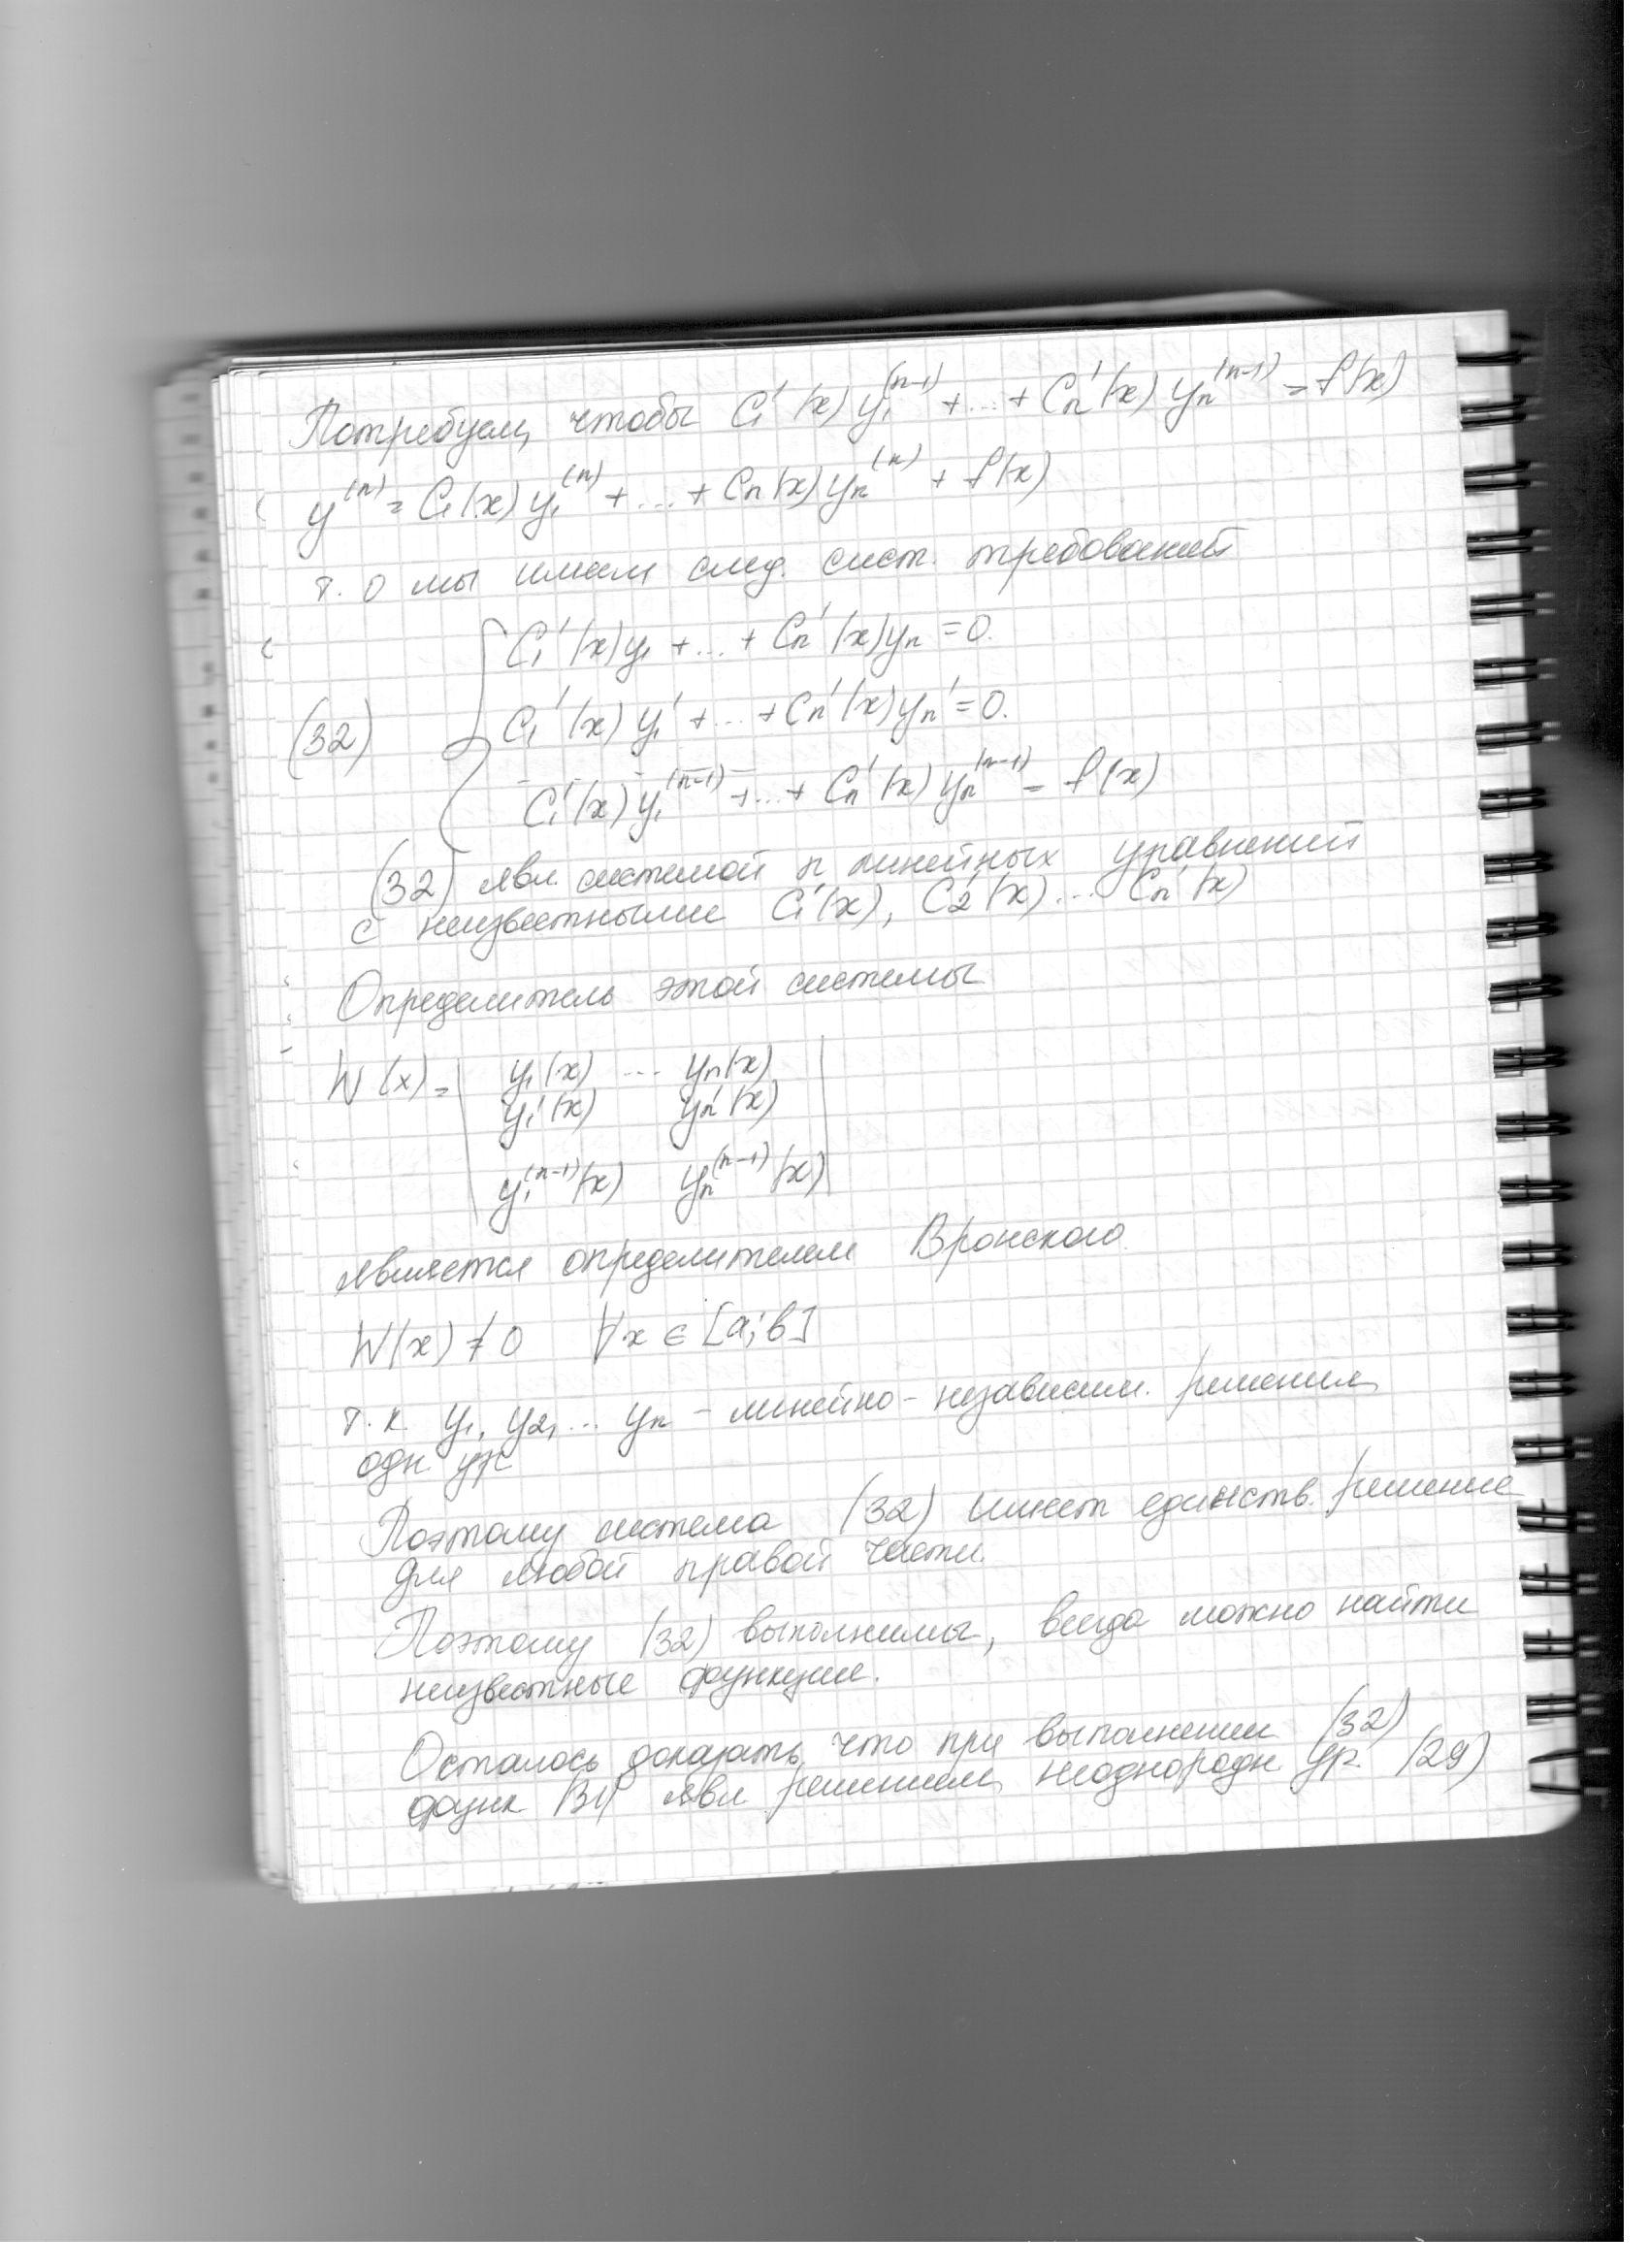 Потребуем, чтобы C₁'(x) y₁⁽ⁿ⁻¹⁾ + ... + Cₙ'(x) yₙ⁽ⁿ⁻¹⁾ = f(x)
y⁽ⁿ⁾ = C₁(x) y₁⁽ⁿ⁾ + ... + Cₙ(x) yₙ⁽ⁿ⁾ + f(x)
т. о мы имеем след. сист. требований
C₁'(x) y₁ + ... + Cₙ'(x) yₙ = 0.
(32) C₁'(x) y₁' + ... + Cₙ'(x) yₙ' = 0.
C₁'(x) y₁⁽ⁿ⁻¹⁾ + ... + Cₙ'(x) yₙ⁽ⁿ⁻¹⁾ = f(x)
(32) явл. системой n линейных уравнений
с неизвестными C₁'(x), C₂'(x) ... Cₙ'(x)
Определитель этой системы
W(x) = | y₁(x) ... yₙ(x) |
y₁'(x) yₙ'(x)
y₁⁽ⁿ⁻¹⁾(x) yₙ⁽ⁿ⁻¹⁾(x)
является определителем Вронского.
W(x) ≠ 0 ∀x ∈ [a; b]
т. к. y₁, y₂, ... yₙ – линейно-независим. решения
одн. ур
Поэтому система (32) имеет единств. решение
для любой правой части.
Поэтому (32) выполнимы, всегда можно найти
неизвестные функции.
Осталось доказать, что при выполнении (32)
функ явл решением неоднородн ур. (29)